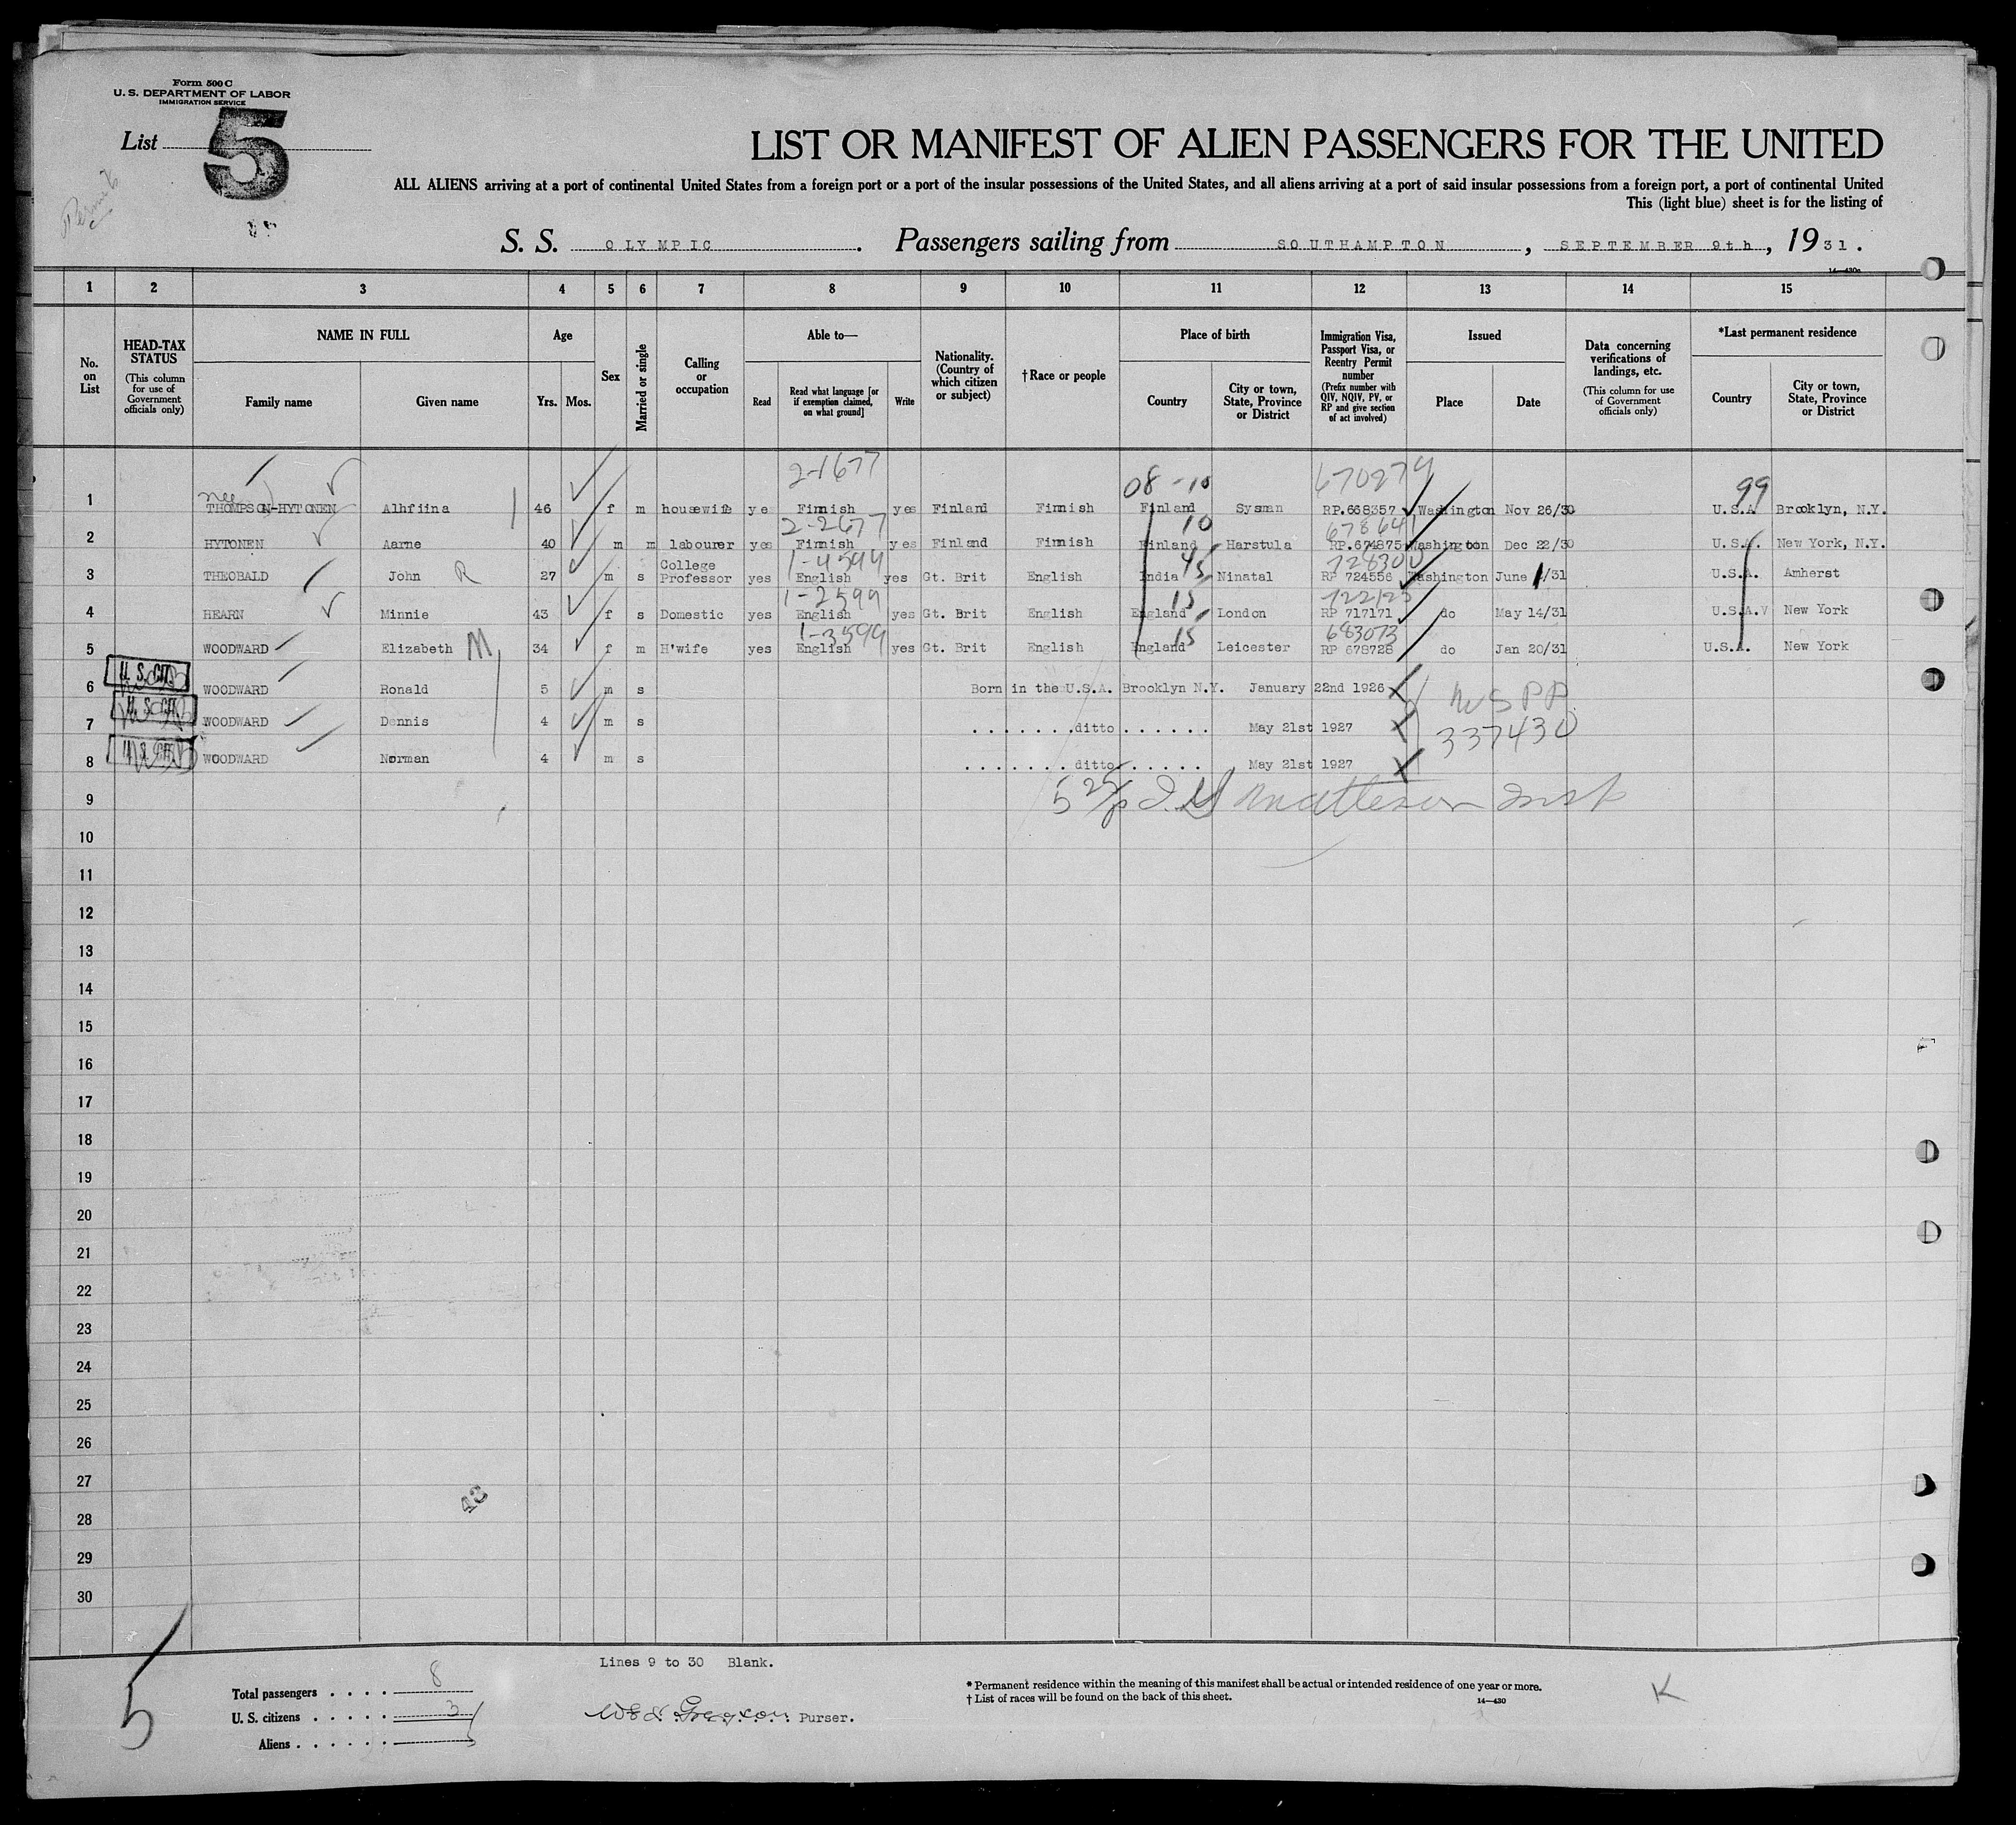 Form 500 C
U. S. DEPARTMENT OF LABOR
IMMIGRATION SERVICE
List 5
Permit
LIST OR MANIFEST OF ALIEN PASSENGERS FOR THE UNITED
ALL ALIENS arriving at a port of continental United States from a foreign port or a port of the insular possessions of the United States, and all aliens arriving at a port of said insular possessions from a foreign port, a port of continental United
This (light blue) sheet is for the listing of
S. S. OLYMPIC. Passengers sailing from SOUTHAMPTON, SEPTEMBER 9th, 1931.
14—430a
1 2 3 4 5 6 7 8 9 10 11 12 13 14 15
No. on List
HEAD-TAX STATUS (This column for use of Government officials only)
NAME IN FULL
Family name Given name
Age
Yrs. Mos.
Sex
Married or single
Calling or occupation
Able to—
Read Read what language [or if exemption claimed, on what ground] Write
Nationality. (Country of which citizen or subject)
†Race or people
Place of birth
Country City or town, State, Province or District
Immigration Visa, Passport Visa, or Reentry Permit number (Prefix number with QIV, NQIV, PV, or RP and give section of act involved)
Issued
Place Date
Data concerning verifications of landings, etc. (This column for use of Government officials only)
*Last permanent residence
Country City or town, State, Province or District
nee 2-1677 08-10 670274 99
1 THOMPSON-HYTONEN Alhfiina 46 f m housewife ye Finnish yes Finland Finnish Finland Sysman RP.668357 Washington Nov 26/30 U.S.A Brooklyn, N.Y.
2-2677 10 678641
2 HYTONEN Aarne 40 m m labourer yes Finnish yes Finland Finnish Finland Harstula RP.674875 Washington Dec 22/30 U.S.A. New York, N.Y.
1-4599 45 728300
3 THEOBALD John R 27 m s College Professor yes English yes Gt. Brit English India Ninatal RP 724556 Washington June 1/31 U.S.A. Amherst
1-2599 15 722125
4 HEARN Minnie 43 f s Domestic yes English yes Gt. Brit English England London RP 717171 do May 14/31 U.S.A. New York
1-3599 15 683073
5 WOODWARD Elizabeth M 34 f m H'wife yes English yes Gt. Brit English England Leicester RP 678728 do Jan 20/31 U.S.A. New York
U. S. CIT.
6 WOODWARD Ronald 5 m s Born in the U.S.A. Brooklyn N.Y. January 22nd 1926
U. S. CIT.
7 WOODWARD Dennis 4 m s .......ditto...... May 21st 1927
U S P P
337430
U. S. CIT.
8 WOODWARD Norman 4 m s ........ditto...... May 21st 1927
9 Matteson Insp
10
11
12
13
14
15
16
17
18
19
20
21
22
23
24
25
26
27
43
28
29
30
5
Lines 9 to 30 Blank.
Total passengers .... 8
U. S. citizens ..... 3
Aliens ...... 5
Purser.
* Permanent residence within the meaning of this manifest shall be actual or intended residence of one year or more.
† List of races will be found on the back of this sheet.
14—430
K